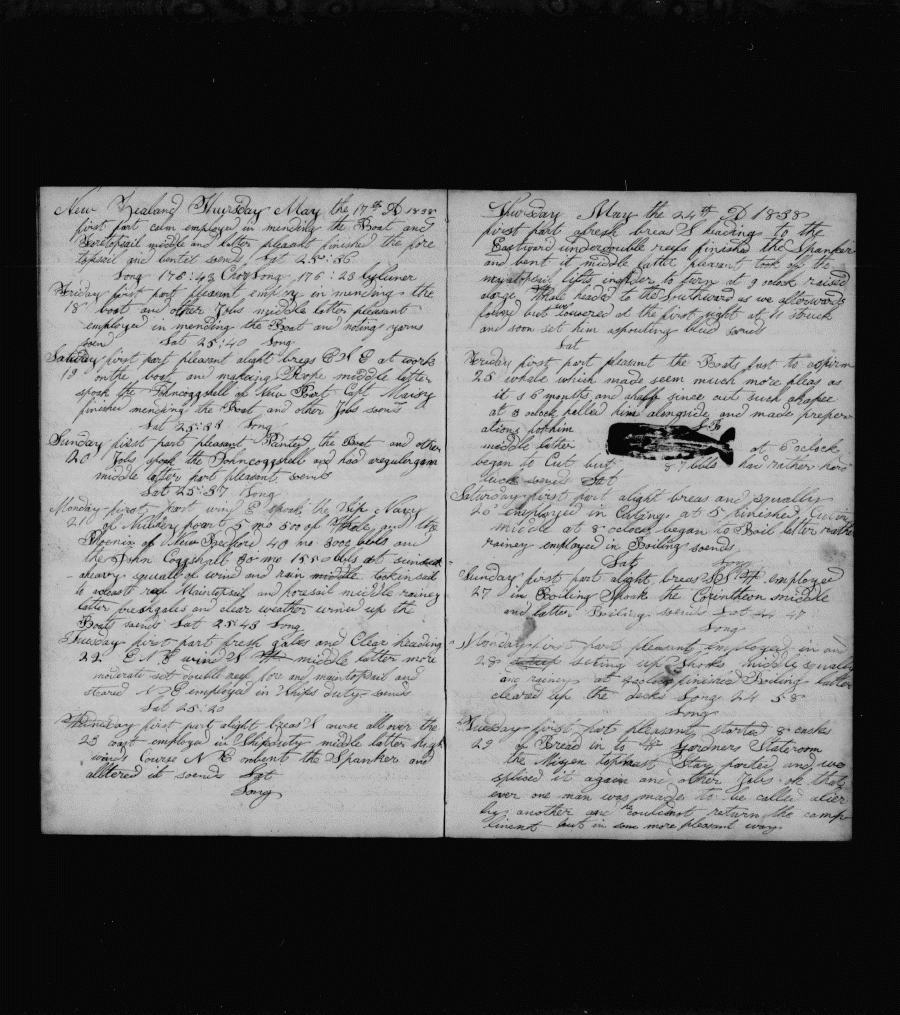 New Zealand Thursday May the 17th AD 1838
first part calm employed in mending the Boat and
Foretopsail middle and latter pleasant finished the fore
topsail and bent it soends Lat 25:56
Long 176:43 Cor Long 176:23 by luner
Friday first part pleasant employ in mending the
18 boat and other Jobs middle latter pleasant
employed in mending the Boat and noting yarns
soend Lat 25:40 Long
Saturday first part pleasant alight breas E N E at work
19 onthe boat and making Rope middle latter
spook the Johncoggshell of New Port Capt
finished mending the Boat and other Jobs soends
Lat 25:38 Long
Sunday first part pleasant Painted the Boat and other
20 Jobs spook the Johncoggshell and had aregulergam
middle latter part pleasant soends
Lat 25:37 Long
Monday first part wind E spook the Ship Navy
21 of 5 mo 500 of Whale and the
Phoenix of New Bedford 40 mo 3000 bbls and
the John Coggshell 30 mo 1550 bbls at sunset
aheavy squall of wind and rain middle tookinsail
to aclosed reef Maintopsail and foresail middle rainey
latter freshgales and clear weather up the
Boats soends Lat 25:43 Long
Tuesday first part fresh gales and Clear heading
22 E N E wind N middle latter more
moderate set double reef fore and maintopsail and
stared N E employed in Ships duty soends
Lat 25:20
Wednesday first part alight breas N all over the
23 coast employed in Shipduty middle latter high
winds Course N E onbent the Spanker and
alltered it soends Lat
Long
Thursday May the 24th AD 1838
first part afresh breas S heading to the
Eastward underdouble reefs finished the Spanker
and bent it middle latter pleasant took off the
mizentopsail lifts inorder to turn at 9 oclock raised
alarge Whale headed to the Southward as we afterwards
but we lowered at the first sight at 11 struck
and soon set him aspouting blud soend
Lat
Friday first part pleasant the Boats fast to asperm
25 whale which made seem much more pleas as
it s 6 months and since cut such ahapee
at 3 oclock pulled him alongside and made preper
ations for him
S B
middle latter at 6 oclock
began to Cut but 87 bbls had rather hard
luck soend Lat
Saturday first part alight breas and squally
26 employed in Cuting at 5 finished Cutin
middle at 8 oclock began to Boil latter rather
rainey employed in Boiling soends
Lat
Long
Sunday first part alight breas employed
27 in Boiling Spook the Corinthean middle
and latter Boiling soends Lat 24 47
Long
Monday first part pleasant employed in and
28 seting up Shooks middle squally
and rainey at finished Boiling latter
cleared up the decks Long 24 58
Long
Tuesday first part pleasant started 8 casks
29 of Bread in to Mr Gardners Stateroom
the Mizen topmast Stay parted and we
spliced it again and other Jobs oh that
ever one man was made to be called alier
by another and he couldnot return the comp
liment but in some more pleasant way